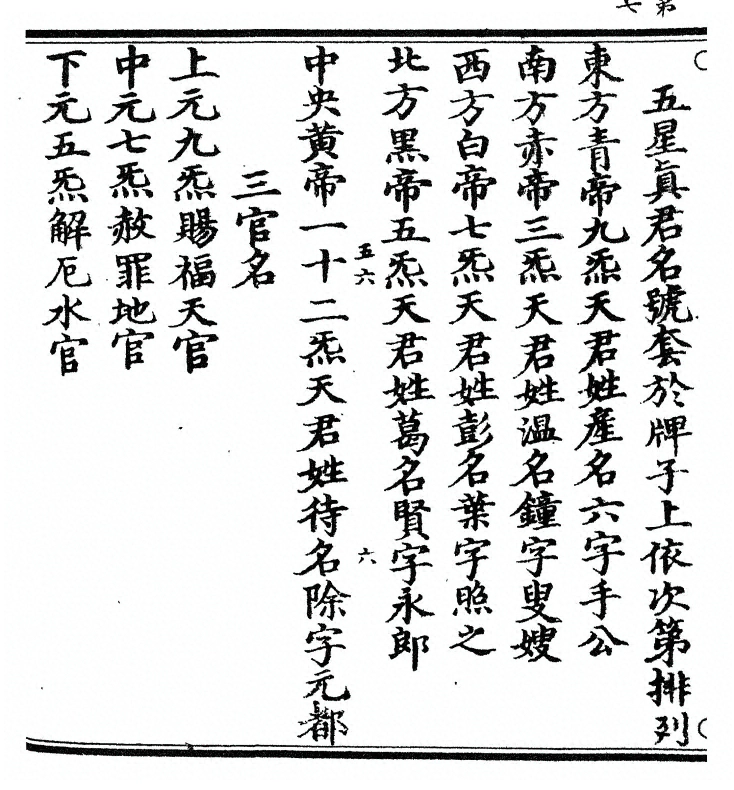 第
七
五星真君名號套於牌子上依次第排列
東方青帝九炁天君姓產名六字手公
南方赤帝三炁天君姓溫名鐘字叟嫂
西方白帝七炁天君姓彭名葉字照之
北方黑帝五炁天君姓葛名賢字永郎
五六
六
中央黃帝一十二炁天君姓待名除字元都
三官名
上元九炁賜福天官
中元七炁赦罪地官
下元五炁解厄水官